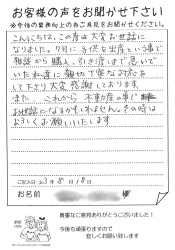 お客様の声をお聞かせ下さい
※今後の業務向上の為ご意見をお聞かせ下さい※
こんにちは、この度は大変お世話に
なりました。9月に子供を出産という事で
相談から購入、引き渡しまで急いで
いた私達に親切丁寧な対応を
して下さり大変感謝しております。
また、これから不動産の事で
お世話になるかもしれません。その時は
よろしくお願いいたします
ご記入日 23年8月18日
お名前 様
貴重なご意見ありがとうございました！
今後も頑張りますので
宜しくお願い致します